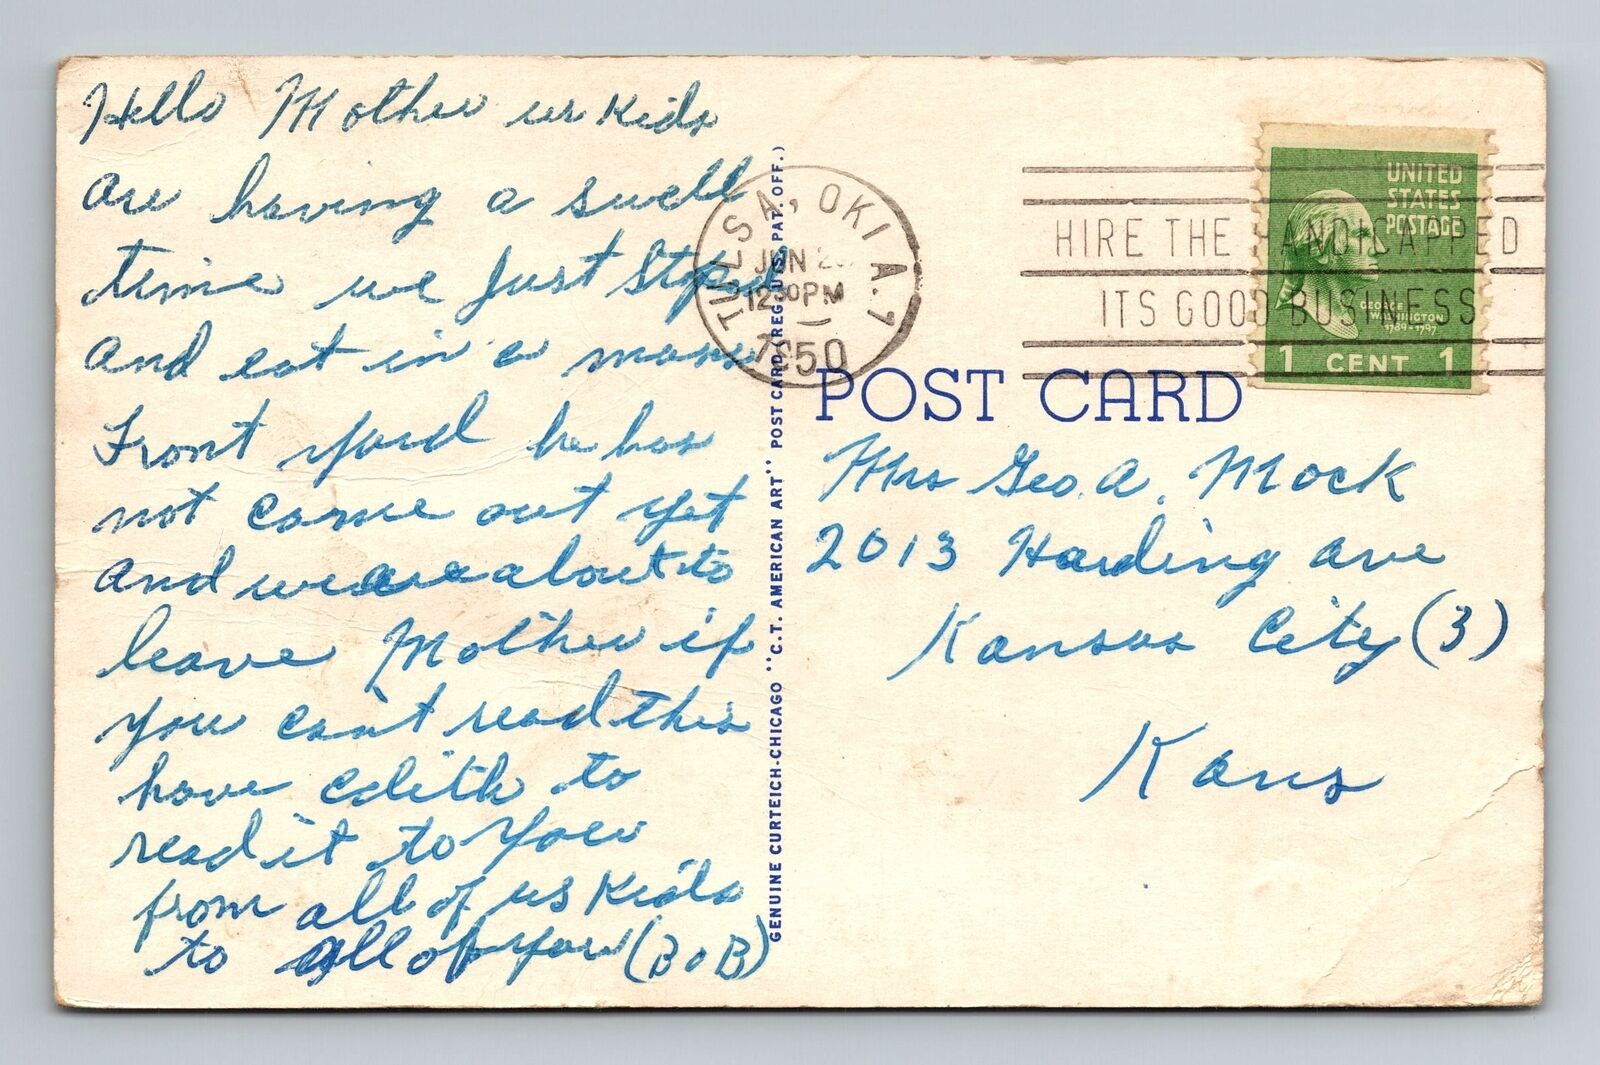 Hello Mother us Kids
are having a swell
time we Just Stoped
and eat in a mans
Front yard he has
not came out yet
and we are about to
leave Mother if
you can't read this
have Edith to
read it to you
from all of us Kids
to all of you (BOB)
GENUINE CURTEICH-CHICAGO "C.T. AMERICAN ART" POST CARD (REG. U.S. PAT. OFF.)
TULSA, OKLA. 7
JUN 2
12 30 PM
1950
HIRE THE HANDICAPPED
ITS GOOD BUSINESS
UNITED
STATES
POSTAGE
GEORGE
WASHINGTON
1789-1797
1 CENT 1
POST CARD
Mrs Geo. A. Mock
2013 Harding ave
Kansas City (3)
Kans